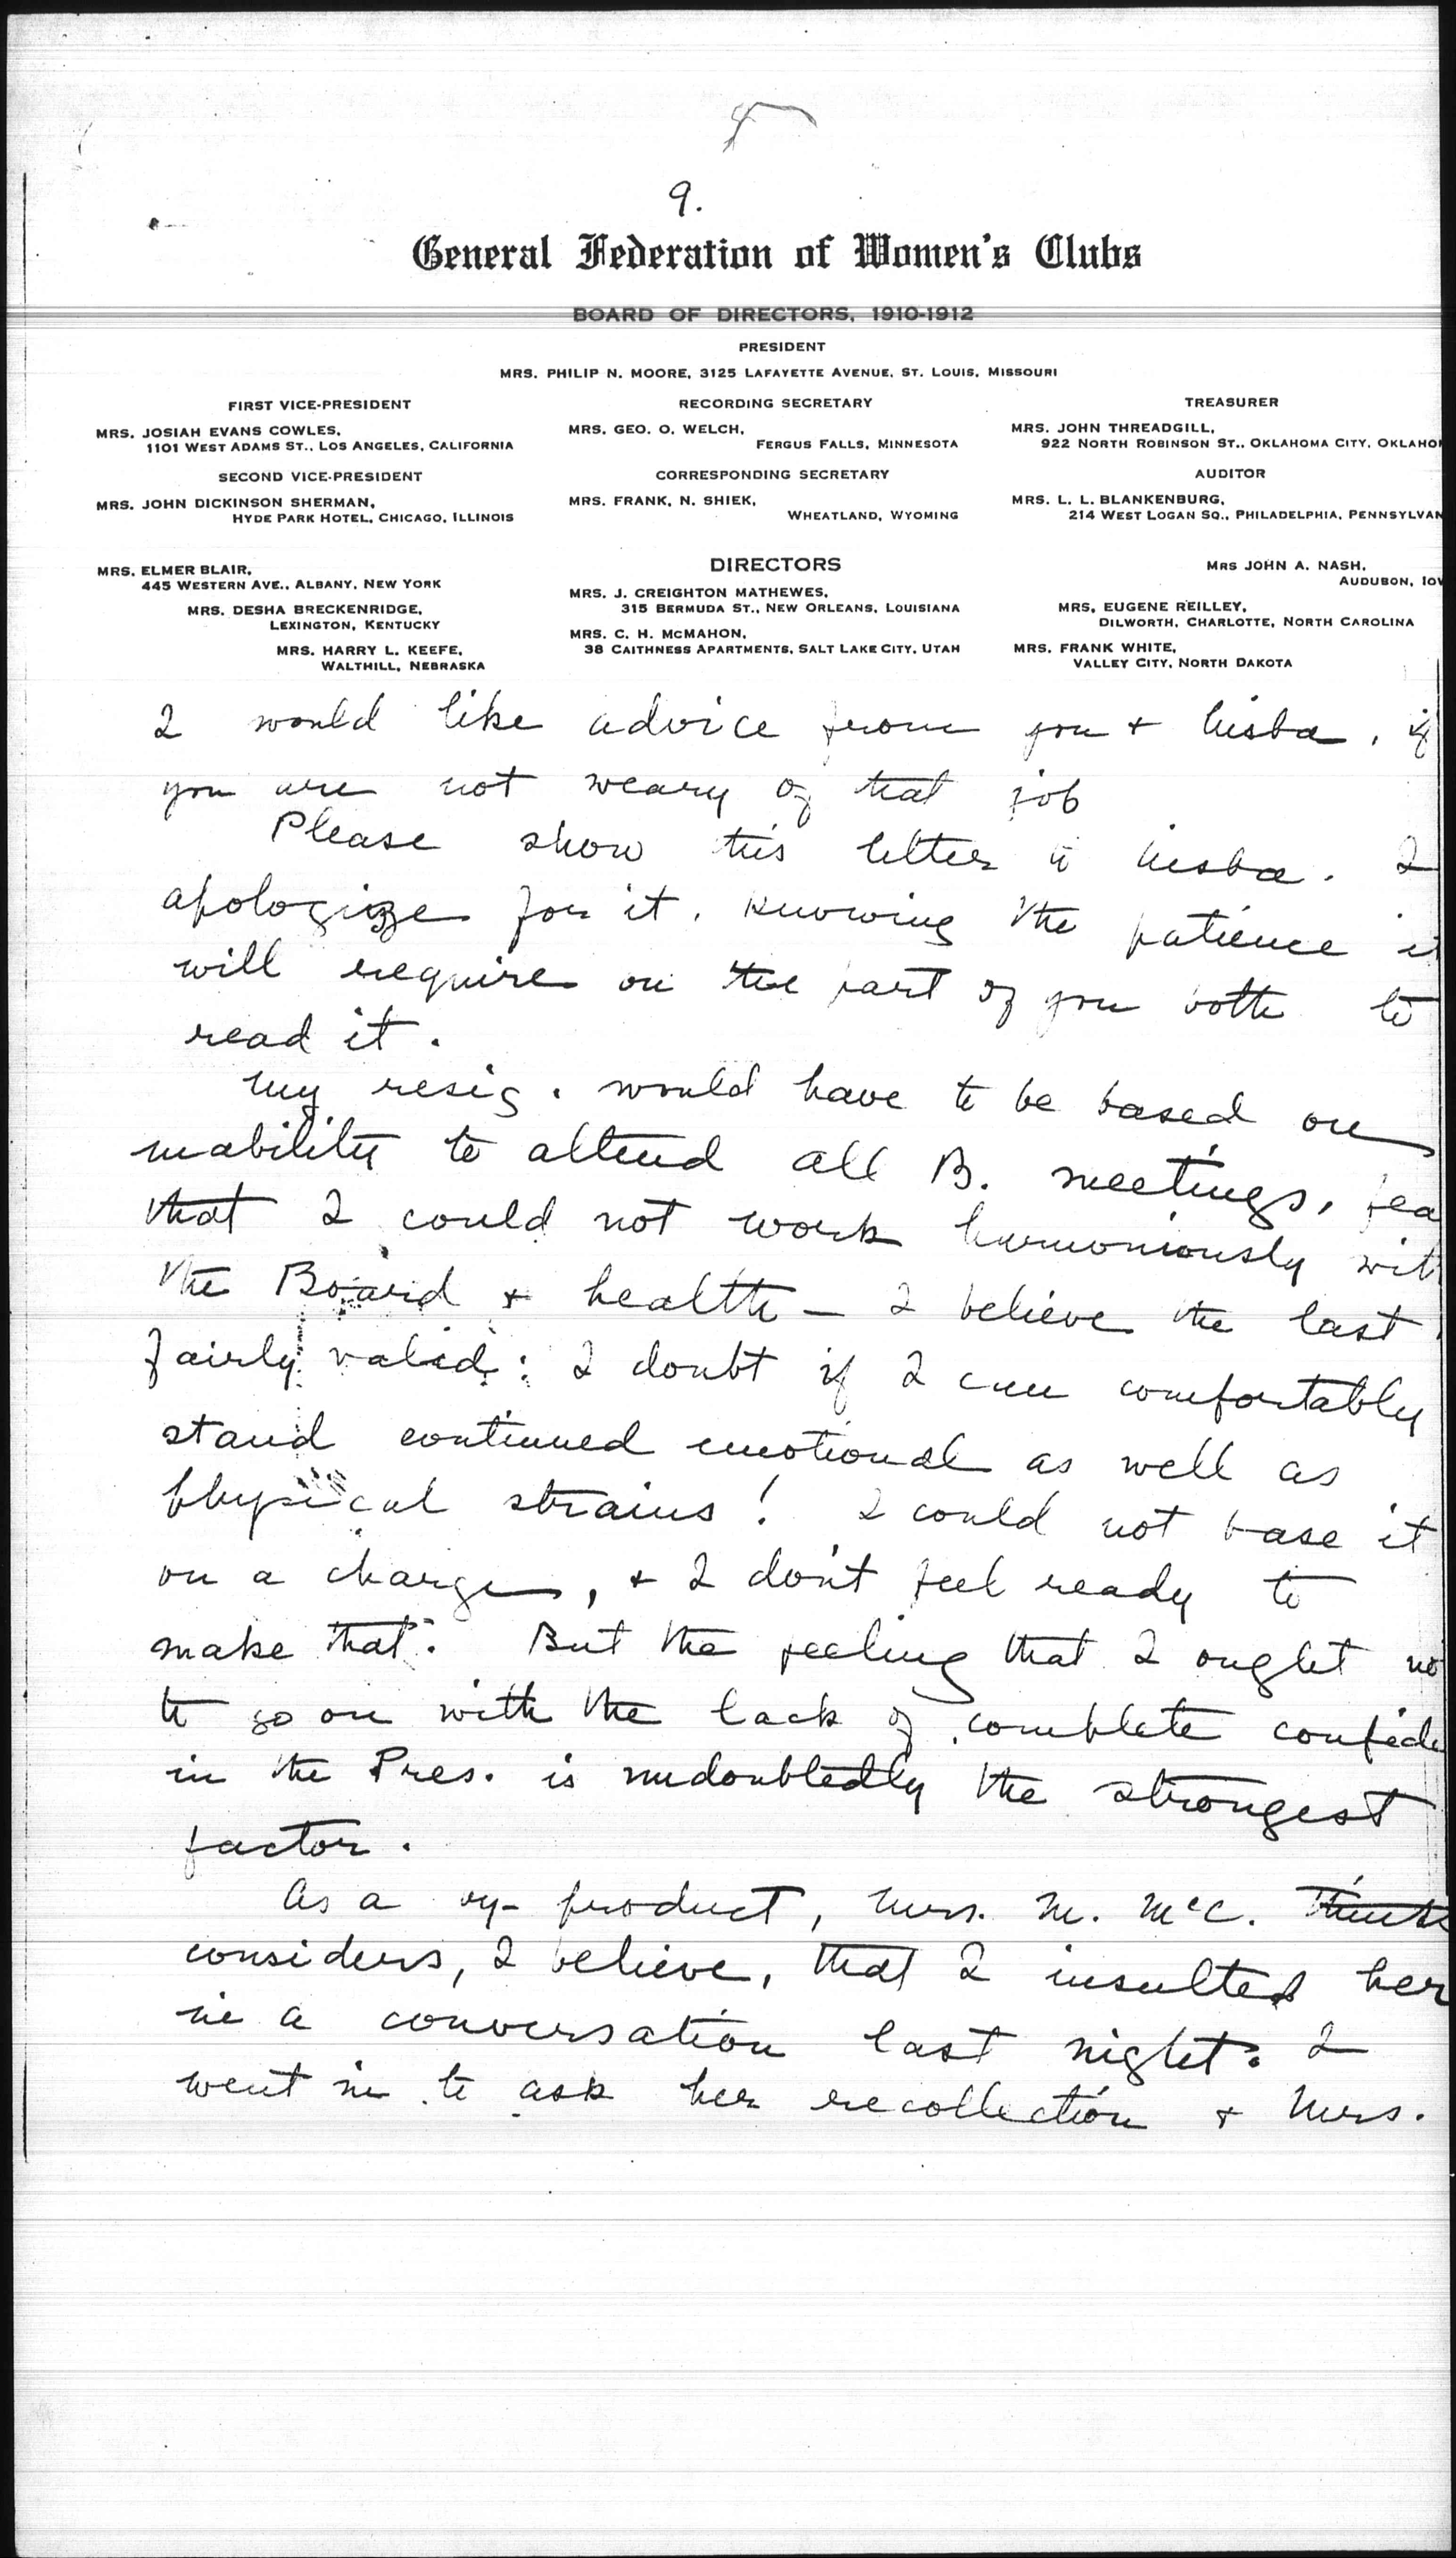 9.
General Federation of Women's Clubs
BOARD OF DIRECTORS, 1910-1912
PRESIDENT
MRS. PHILIP N. MOORE, 3125 LAFAYETTE AVENUE, ST. LOUIS, MISSOURI
FIRST VICE-PRESIDENT
MRS. JOSIAH EVANS COWLES,
1101 WEST ADAMS ST., LOS ANGELES, CALIFORNIA
SECOND VICE-PRESIDENT
MRS. JOHN DICKINSON SHERMAN,
HYDE PARK HOTEL, CHICAGO, ILLINOIS
RECORDING SECRETARY
MRS. GEO. O. WELCH,
FERGUS FALLS, MINNESOTA
CORRESPONDING SECRETARY
MRS. FRANK, N. SHIEK,
WHEATLAND, WYOMING
TREASURER
MRS. JOHN THREADGILL,
922 NORTH ROBINSON ST., OKLAHOMA CITY, OKLAHO
AUDITOR
MRS. L. L. BLANKENBURG,
214 WEST LOGAN SQ., PHILADELPHIA, PENNSYLVAN
DIRECTORS
MRS. ELMER BLAIR,
445 WESTERN AVE., ALBANY, NEW YORK
MRS. DESHA BRECKENRIDGE,
LEXINGTON, KENTUCKY
MRS. HARRY L. KEEFE,
WALTHILL, NEBRASKA
MRS. J. CREIGHTON MATHEWES,
315 BERMUDA ST., NEW ORLEANS, LOUISIANA
MRS. C. H. MCMAHON,
38 CAITHNESS APARTMENTS, SALT LAKE CITY, UTAH
MRS JOHN A. NASH,
AUDUBON, IOW
MRS. EUGENE REILLEY,
DILWORTH, CHARLOTTE, NORTH CAROLINA
MRS. FRANK WHITE,
VALLEY CITY, NORTH DAKOTA
I would like advice from you + Lisba, if
you are not weary of that job
Please show this letter to Lisba. I
apologize for it, knowing the patience it
will require on the part of you both to
read it.
My resig. would have to be based on
inability to attend all B. meetings, fea
that I could not work harmoniously wit
the Board + health - I believe the last
fairly valid: I doubt if I can comfortably
stand continued emotional as well as
physical strains! I could not base it
on a charge, + I don't feel ready to
make that. But the feeling that I ought no
to go on with the lack of complete confide
in the Pres. is undoubtedly the strongest
factor.
As a by-product, Mrs. M. McC. thinks
considers, I believe, that I insulted her
in a conversation last night. I
went in to ask her recollection + Mrs.